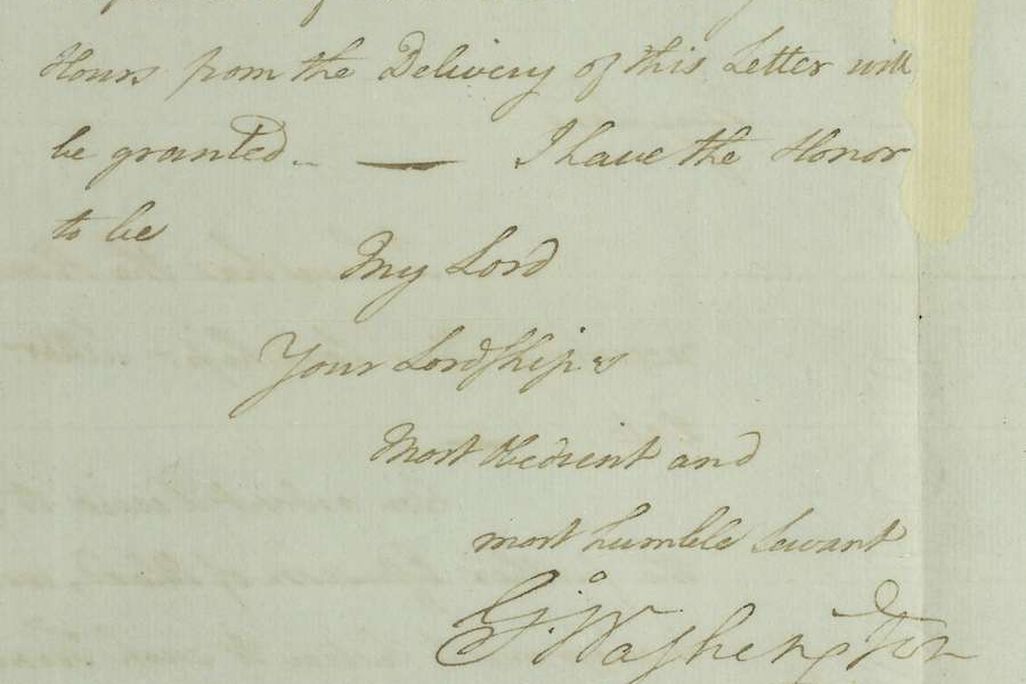 Hours from the Delivery of this Letter will
be granted.. — I have the Honor
to be
My Lord
Your Lordship's
Most Obedient and
most humble Servant
Go: Washington